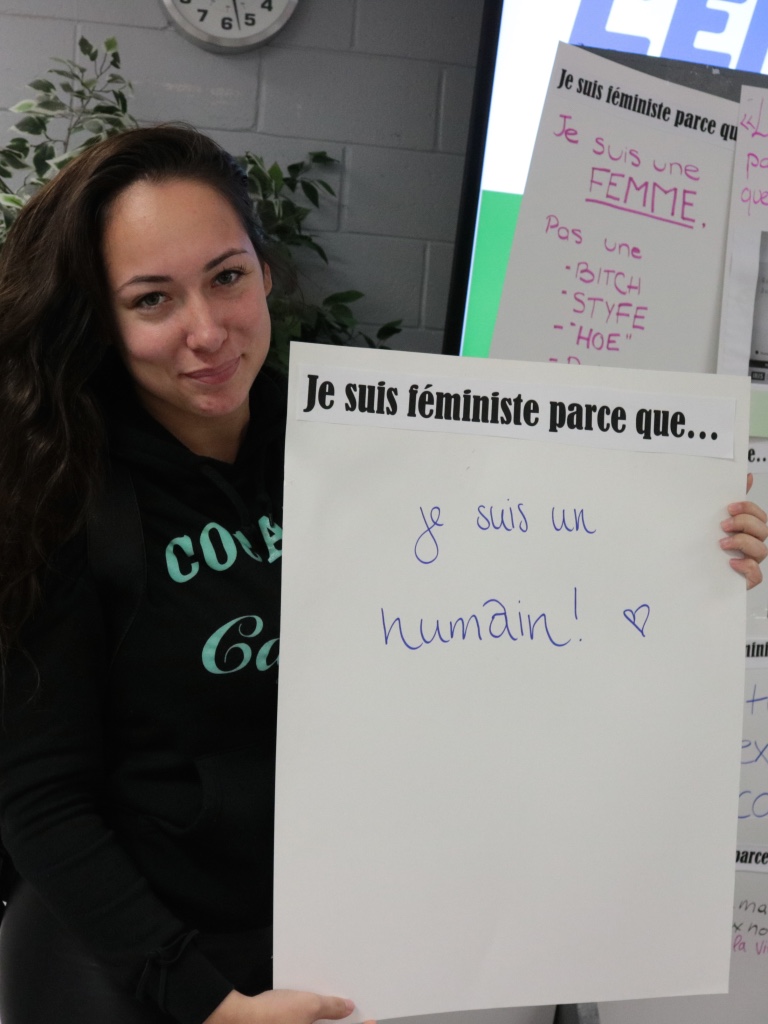 7 6 5 4
Je suis féministe parce qu
Je suis une
FEMME.
Pas une
- BITCH
- STYFE
- "HOE"
Je suis féministe parce que...
je suis un
humain! ♡
e...
parce
ma
la vi